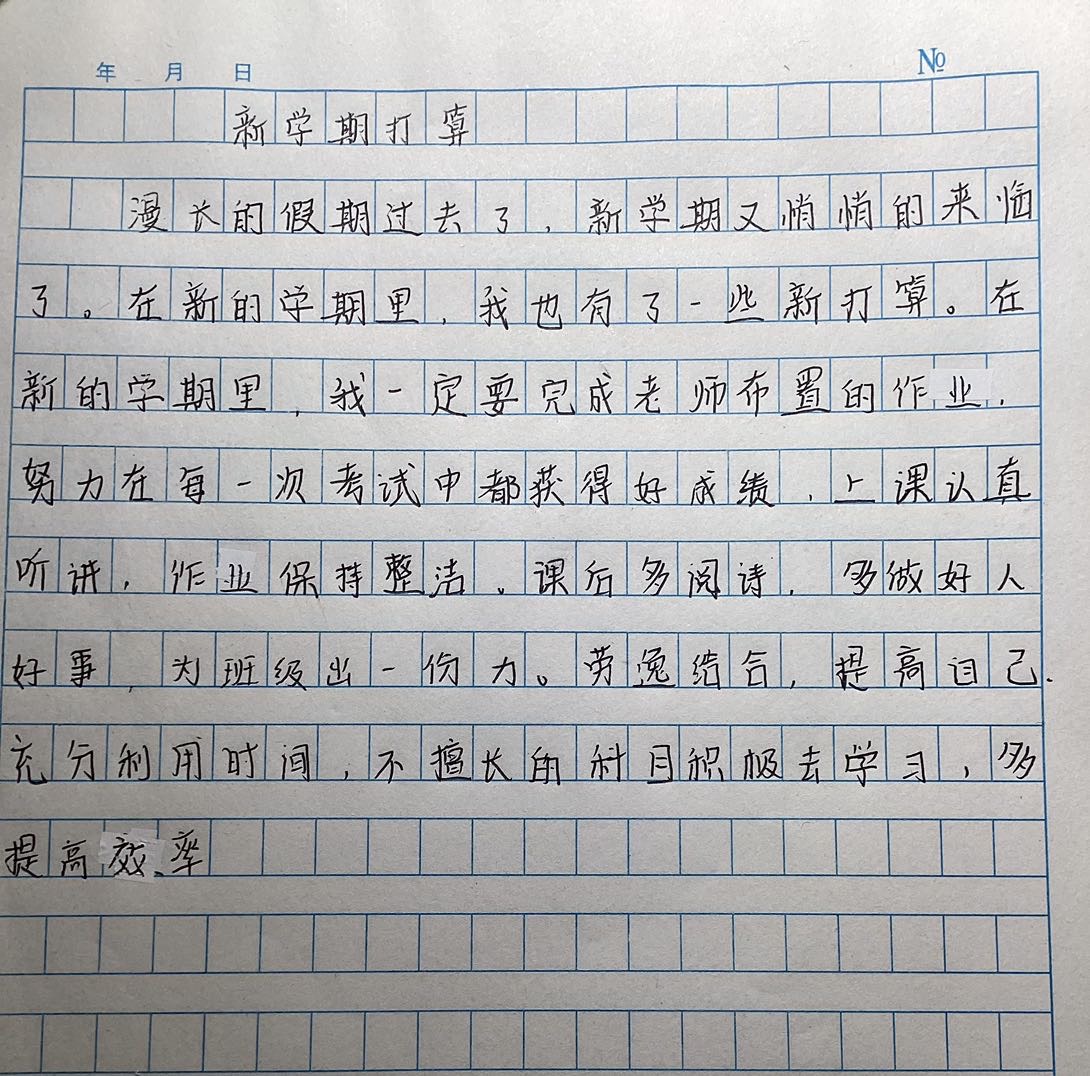 年 月 日 №
新学期打算
漫长的假期过去了,新学期又悄悄的来临
了。在新的学期里,我也有了一些新打算。在
新的学期里,我一定要完成老师布置的作业,
努力在每一次考试中都获得好成绩,上课认真
听讲,作业保持整洁。课后多阅读,多做好人
好事,为班级出一份力。劳逸结合,提高自己.
充分利用时间,不擅长的科目积极去学习,多
提高效率